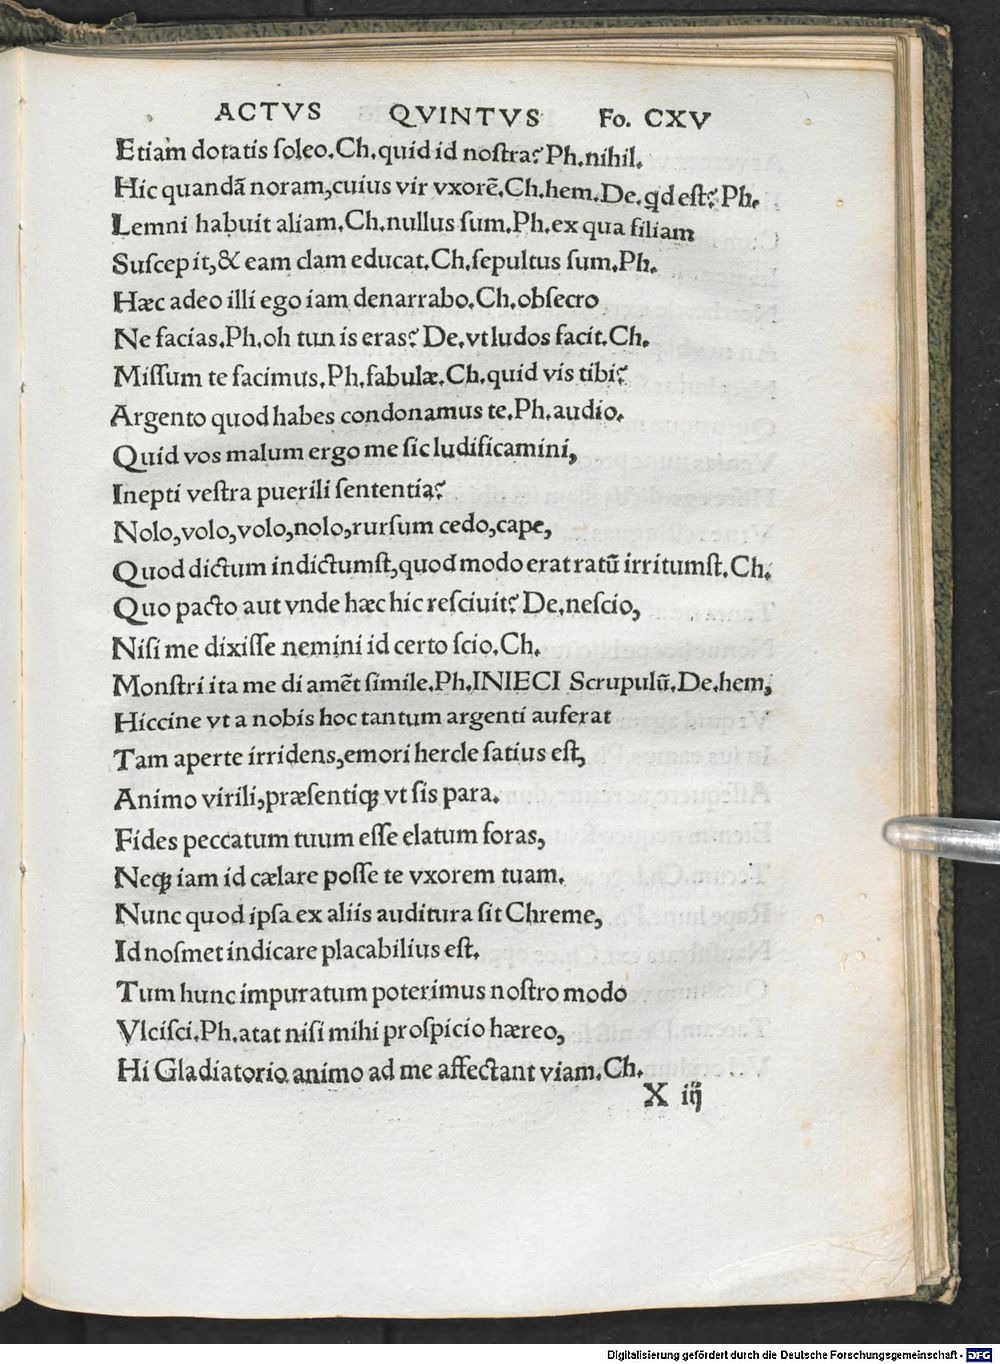 ACTVS QVINTVS Fo. CXV
Etiam dotatis ſoleo.Ch.quid id noſtra? Ph.nihil.
Hic quandã noram,cuius vir vxorẽ.Ch.hem.De.qd eſt? Ph.
Lemni habuit aliam.Ch.nullus ſum.Ph.ex qua filiam
Suſcepit,& eam clam educat.Ch.ſepultus ſum.Ph.
Hæc adeo illi ego iam denarrabo.Ch.obſecro
Ne facias.Ph.oh tun is eras? De.vt ludos facit.Ch.
Miſſum te facimus.Ph.fabulæ.Ch.quid vis tibi?
Argento quod habes condonamus te.Ph.audio.
Quid vos malum ergo me ſic ludificamini,
Inepti veſtra puerili ſententia?
Nolo,volo,volo,nolo,rurſum cedo,cape,
Quod dictum indictumſt,quod modo erat ratũ irritumſt.Ch.
Quo pacto aut vnde hæc hic reſciuit? De.neſcio,
Niſi me dixiſſe nemini id certo ſcio.Ch.
Monſtri ita me di amẽt ſimile.Ph.INIECI Scrupulũ.De.hem,
Hiccine vt a nobis hoc tantum argenti auferat
Tam aperte irridens,emori hercle ſatius eſt,
Animo virili,præſentiqꝫ vt ſis para.
Fides peccatum tuum eſſe elatum foras,
Neqꝫ iam id cælare poſſe te vxorem tuam.
Nunc quod ipſa ex aliis auditura ſit Chreme,
Id noſmet indicare placabilius eſt.
Tum hunc impuratum poterimus noſtro modo
Vlciſci.Ph.atat niſi mihi proſpicio hæreo,
Hi Gladiatorio animo ad me affectant viam.Ch.
X iij
Digitalisierung gefördert durch die Deutsche Forschungsgemeinschaft - DFG